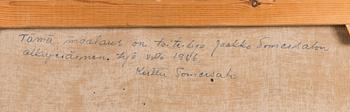 Tämä maalaus on taiteilija Jaakko Somersalon
alkuperäinen. työ v:lta 1946
Kerttu Somersalo